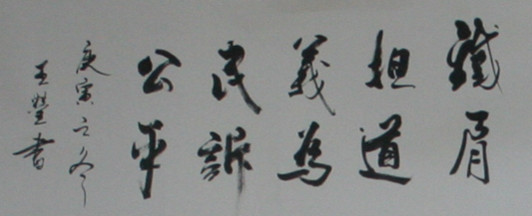 鐵肩
担道
義為
民訴
公平
庚寅之冬
王書